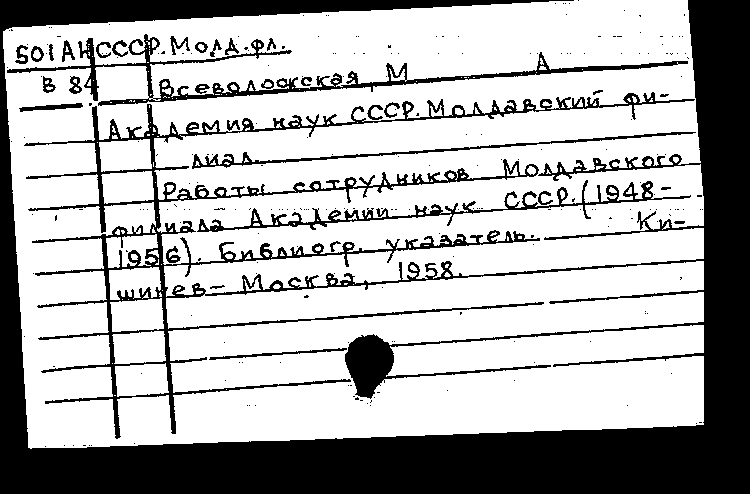 501АНСССР.Молд.фл.
В 84 Всеволожская, М А
Академия наук СССР. Молдавский фи-
лиал.
Работы сотрудников Молдавского
филиала Академии наук СССР. (1948-
1956). Библиогр. указатель. Ки-
шинев - Москва, 1958.